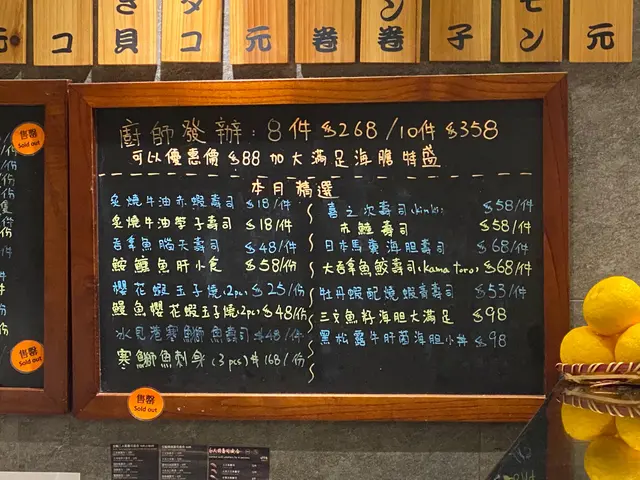 さ貝
タコ
元
巻
ン巻
子
モン
元
コ
售罄
Sold out
廚師發辦：8件$268/10件$358
可以優惠價$88加大滿足海膽特盛
本月精選
炙燒牛油赤蝦壽司 $18/件
炙燒牛油帶子壽司 $18/件
吞拿魚腦天壽司 $48/件
鮟鱇魚肝小食 $58/份
櫻花蝦玉子燒(2pc) $25/份
鰻魚櫻花蝦玉子燒(2pc) $48/份
冰見港寒鰤魚壽司 $48/件
寒鰤魚刺身(3pcs) $168/份
喜之次壽司(kinki) $58/件
壽司 $58/件
日本馬糞海胆壽司 $68/件
大吞拿魚鮫壽司(kama toro) $68/件
牡丹蝦配燒蝦膏壽司 $53/件
三文魚籽海胆大滿足 $98
黑松露牛肝菌海胆小丼 $98
售罄
Sold out
售罄
Sold out